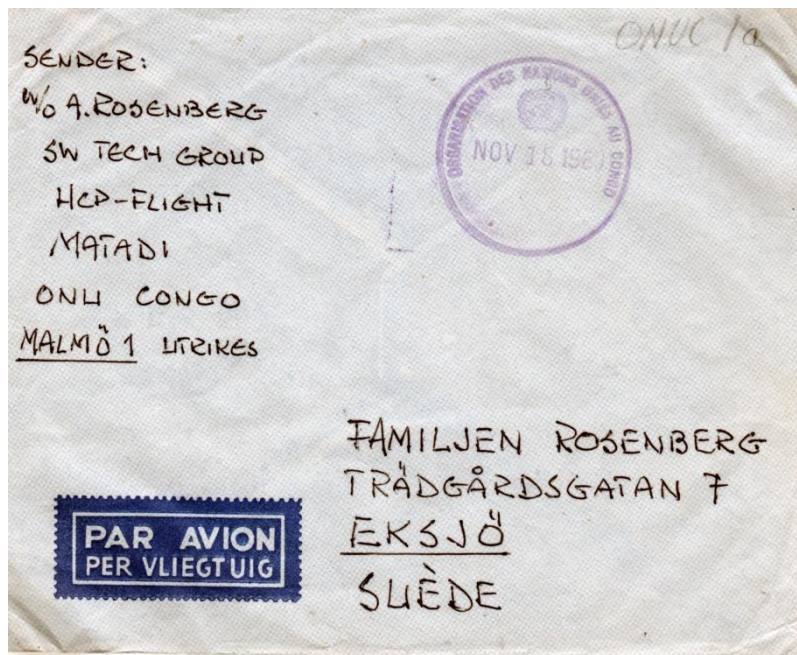 ONUC 1a
SENDER:
W/O A. ROSENBERG
SW TECH GROUP
HCP-FLIGHT
MATADI
ONU CONGO
MALMÖ 1 UTRIKES
ORGANISATION DES NATIONS UNIES AU CONGO
NOV 18 196
FAMILJEN ROSENBERG
TRÄDGÅRDSGATAN 7
EKSJÖ
SUÈDE
PAR AVION
PER VLIEGTUIG